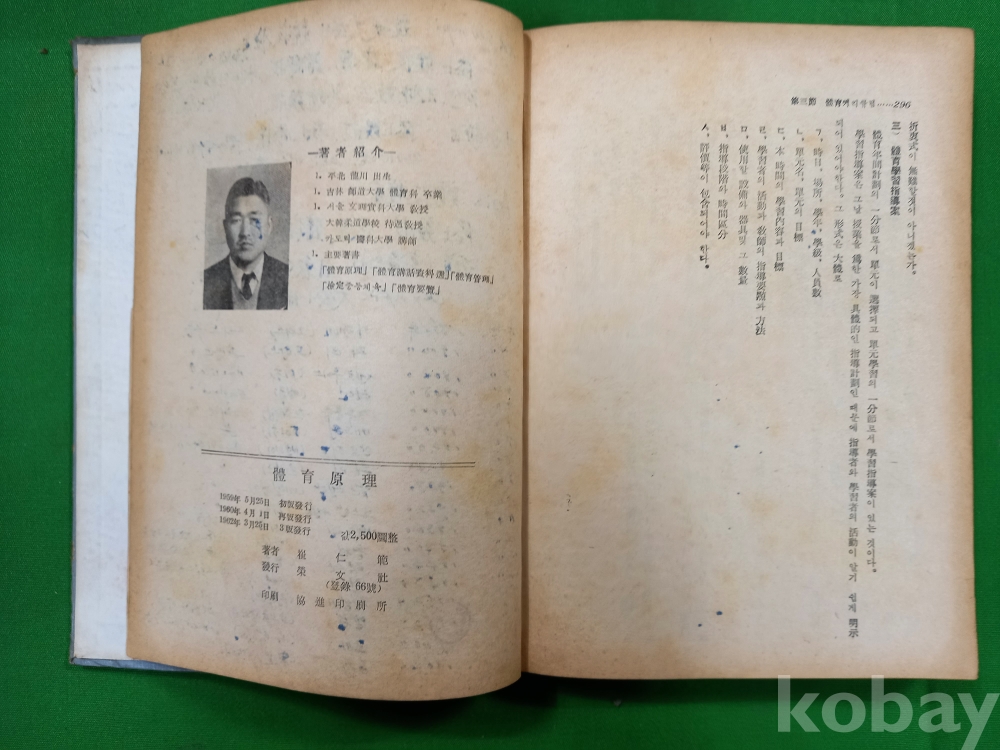 —著者紹介—
1. 平北 龍川 出生
1. 吉林 師道大學 體育科 卒業
1. 서울 文理實科大學 敎授
大韓柔道學校 待遇敎授
카토릭 醫科大學 講師
1. 主要著書
「體育原理」「體育講話資料選」「體育管理」
「檢定중등체육」「體育要覽」
體育原理
1959年 5月25日 初版發行
1960年 4月 1日 再版發行
1962年 3月25日 3版發行
값2,500圜整
著者 崔仁範
發行 榮文社
(登錄 66號)
印刷 協進印刷所
第三節 體育케리큐럼……296
折衷式이 無難할것이 아니겠는가。
三、體育學習指導案
體育年間計劃의 一分節로서 單元이 選擇되고 單元學習의 一分節로서 學習指導案이 있는 것이다。
學習指導案은 그날 授業을 爲한 가장 具體的인 指導計劃인 때문에 指導者와 學習者의 活動이 알기 쉽게 明示
되어 있어야한다。그 形式은 大體로
ㄱ、時日、場所、學年、學級、人員數
ㄴ、單元名、單元의 目標
ㄷ、本 時間의 學習內容과 目標
ㄹ、學習者의 活動과 敎師의 指導要點과 方法
ㅁ、使用할 設備와 器具및 그 數量
ㅂ、指導段階와 時間區分
ㅅ、評價等이 包含되어야 한다。
kobay